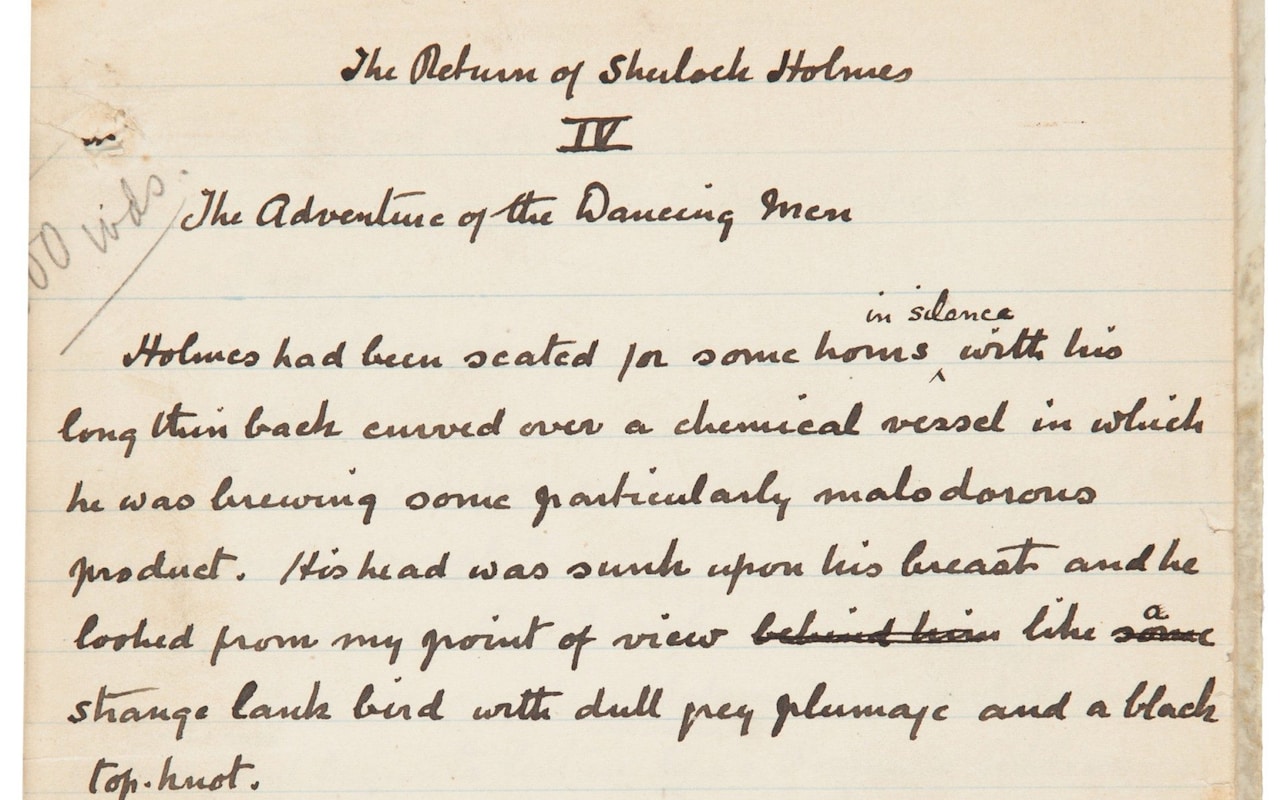 The Return of Sherlock Holmes
IV
The Adventure of the Dancing Men
in silence
Holmes had been seated for some hours ^ with his
long thin back curved over a chemical vessel in which
he was brewing some particularly malodorous
product. His head was sunk upon his breast and he
a
looked from my point of view behind him like some
strange lank bird with dull grey plumage and a black
top-knot.